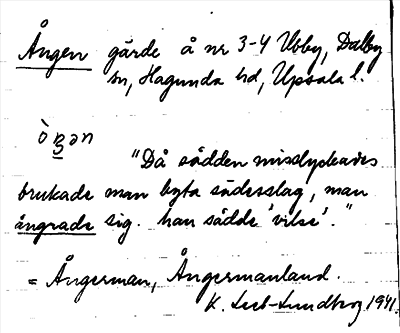 Ången gärde å nr 3-4 Ubby, Dalby
sn, Hagunda hd, Upsala l.
"Då sådden misslyckades
brukade man byta sädesslag, man
ångrade sig. han sådde 'vilse'."
= Ångerman, Ångermanland.
K. Leib-Lundberg 1941.